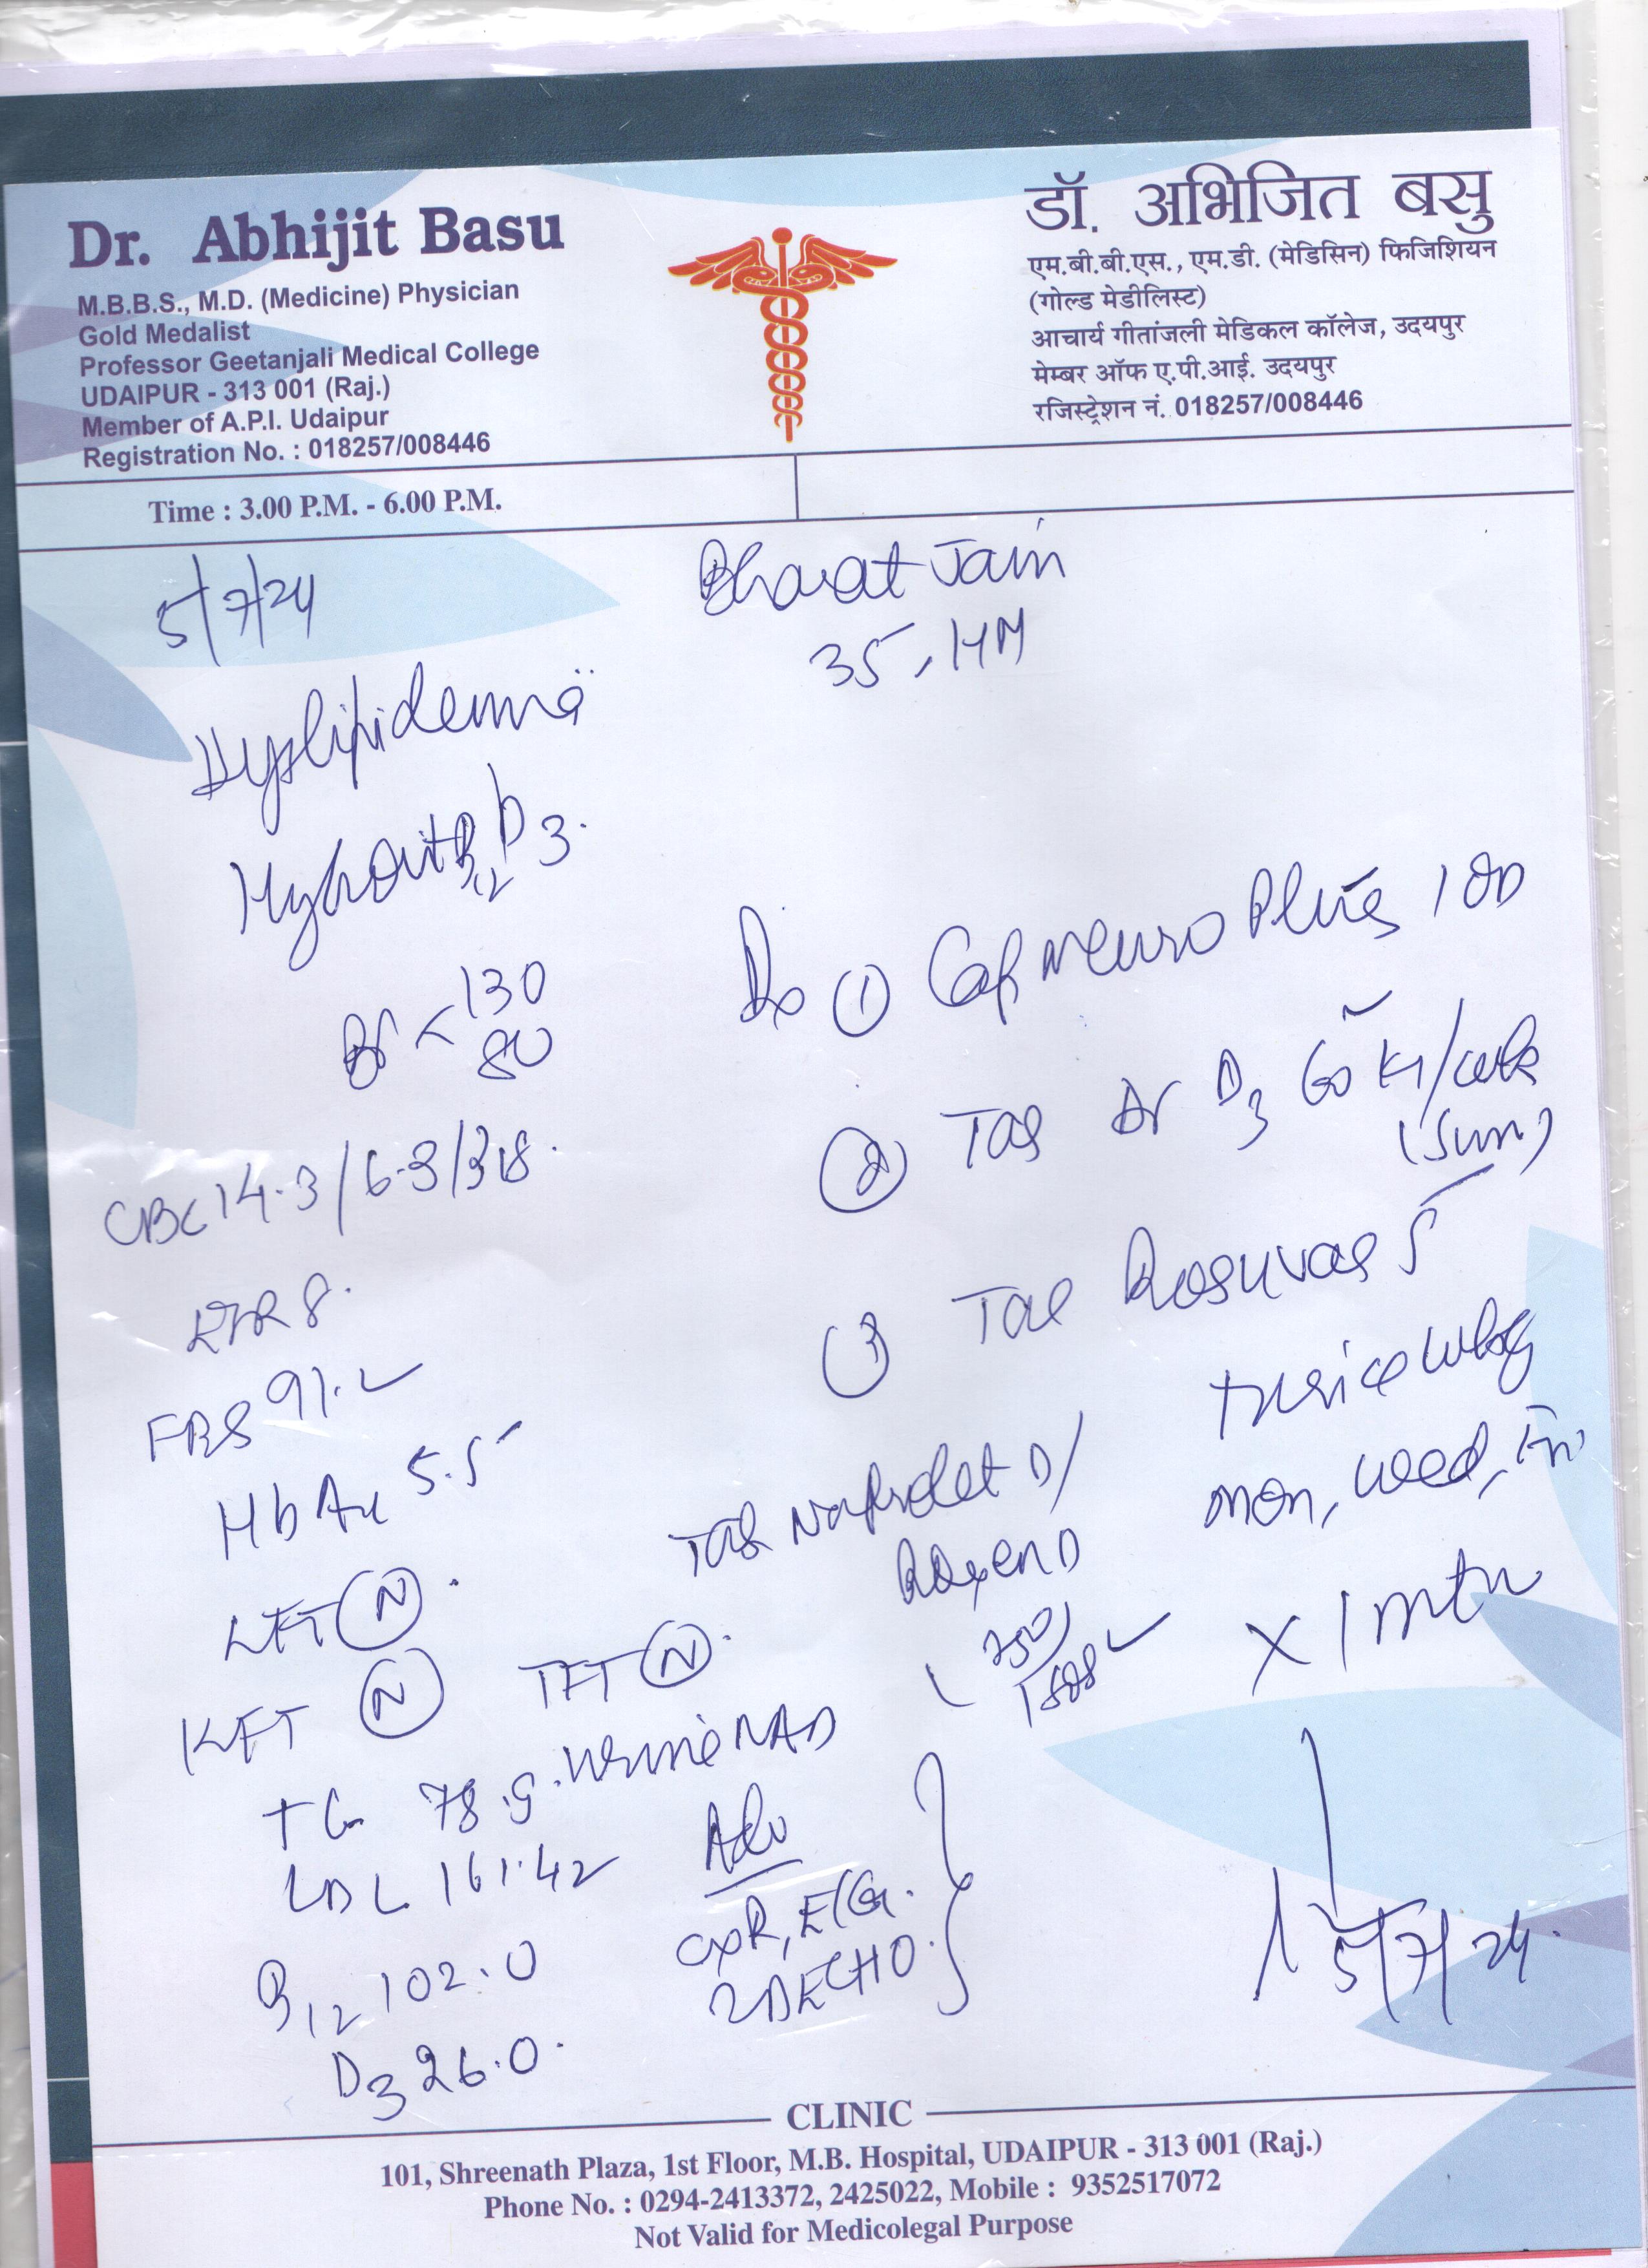 Dr. Abhijit Basu
M.B.B.S., M.D. (Medicine) Physician
Gold Medalist
Professor Geetanjali Medical College
UDAIPUR - 313 001 (Raj.)
Member of A.P.I. Udaipur
Registration No. : 018257/008446
डॉ. अभिजित बसु
एम.बी.बी.एस., एम.डी. (मेडिसिन) फिजिशियन
(गोल्ड मेडीलिस्ट)
आचार्य गीतांजली मेडिकल कॉलेज, उदयपुर
मेम्बर ऑफ ए.पी.आई. उदयपुर
रजिस्ट्रेशन नं. 018257/008446
Time : 3.00 P.M. - 6.00 P.M.
5/7/24
Bharat Jain
35,
Dyslipidemia
B12 D3.
BP < 130
80
CBC 14.3/6.3/318.
ESR 8.
FBS 91.2
HbA1c 5.5
LFT (N).
KFT (N) TFT (N).
TG 78.9. Urine NAD
LDL 161.42
B12 102.0
D3 26.0.
Rx (1) Cap Neuro Plus 1 OD
(2) Tab D3 60K/wk
(Sun)
(3) Tab Rosuvas 5
thrice wkly
mon, wed, Fri
x 1 mth
Tab D/
D
250/
Adv
CXR, ECG.
2DECHO.
5/7/24.
CLINIC
101, Shreenath Plaza, 1st Floor, M.B. Hospital, UDAIPUR - 313 001 (Raj.)
Phone No. : 0294-2413372, 2425022, Mobile : 9352517072
Not Valid for Medicolegal Purpose